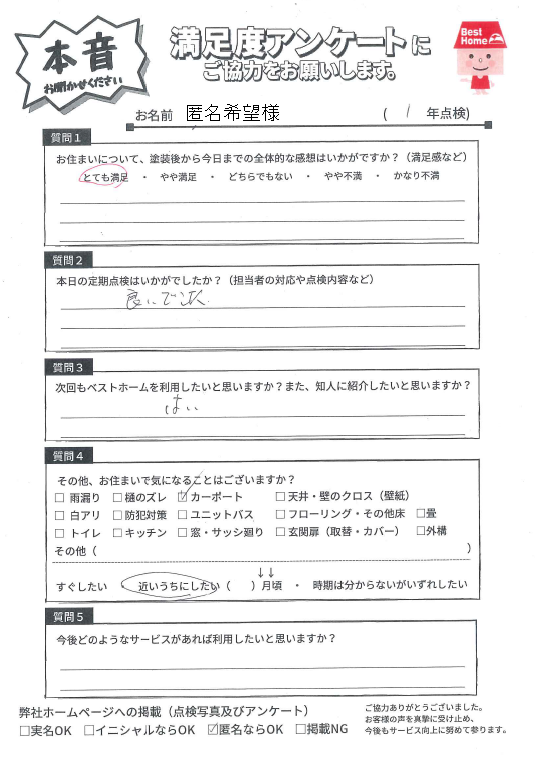 本音
お聞かせください
満足度アンケートに
ご協力をお願いします。
Best Home
お名前 匿名希望様 ( 1 年点検)
質問1
お住まいについて、塗装後から今日までの全体的な感想はいかがですか?(満足感など)
とても満足 ・ やや満足 ・ どちらでもない ・ やや不満 ・ かなり不満
質問2
本日の定期点検はいかがでしたか?(担当者の対応や点検内容など)
良いで
質問3
次回もベストホームを利用したいと思いますか?また、知人に紹介したいと思いますか?
はい
質問4
その他、お住まいで気になることはございますか?
□ 雨漏り □ 樋のズレ ☑ カーポート □ 天井・壁のクロス(壁紙)
□ 白アリ □ 防犯対策 □ ユニットバス □ フローリング・その他床 □畳
□ トイレ □ キッチン □ 窓・サッシ廻り □ 玄関扉(取替・カバー) □外構
その他( )
↓↓
すぐしたい ・ 近いうちにしたい( )月頃 ・ 時期は分からないがいずれしたい
質問5
今後どのようなサービスがあれば利用したいと思いますか?
弊社ホームページへの掲載(点検写真及びアンケート)
□実名OK □イニシャルならOK ☑匿名ならOK □掲載NG
ご協力ありがとうございました。
お客様の声を真摯に受け止め、
今後もサービス向上に努めて参ります。